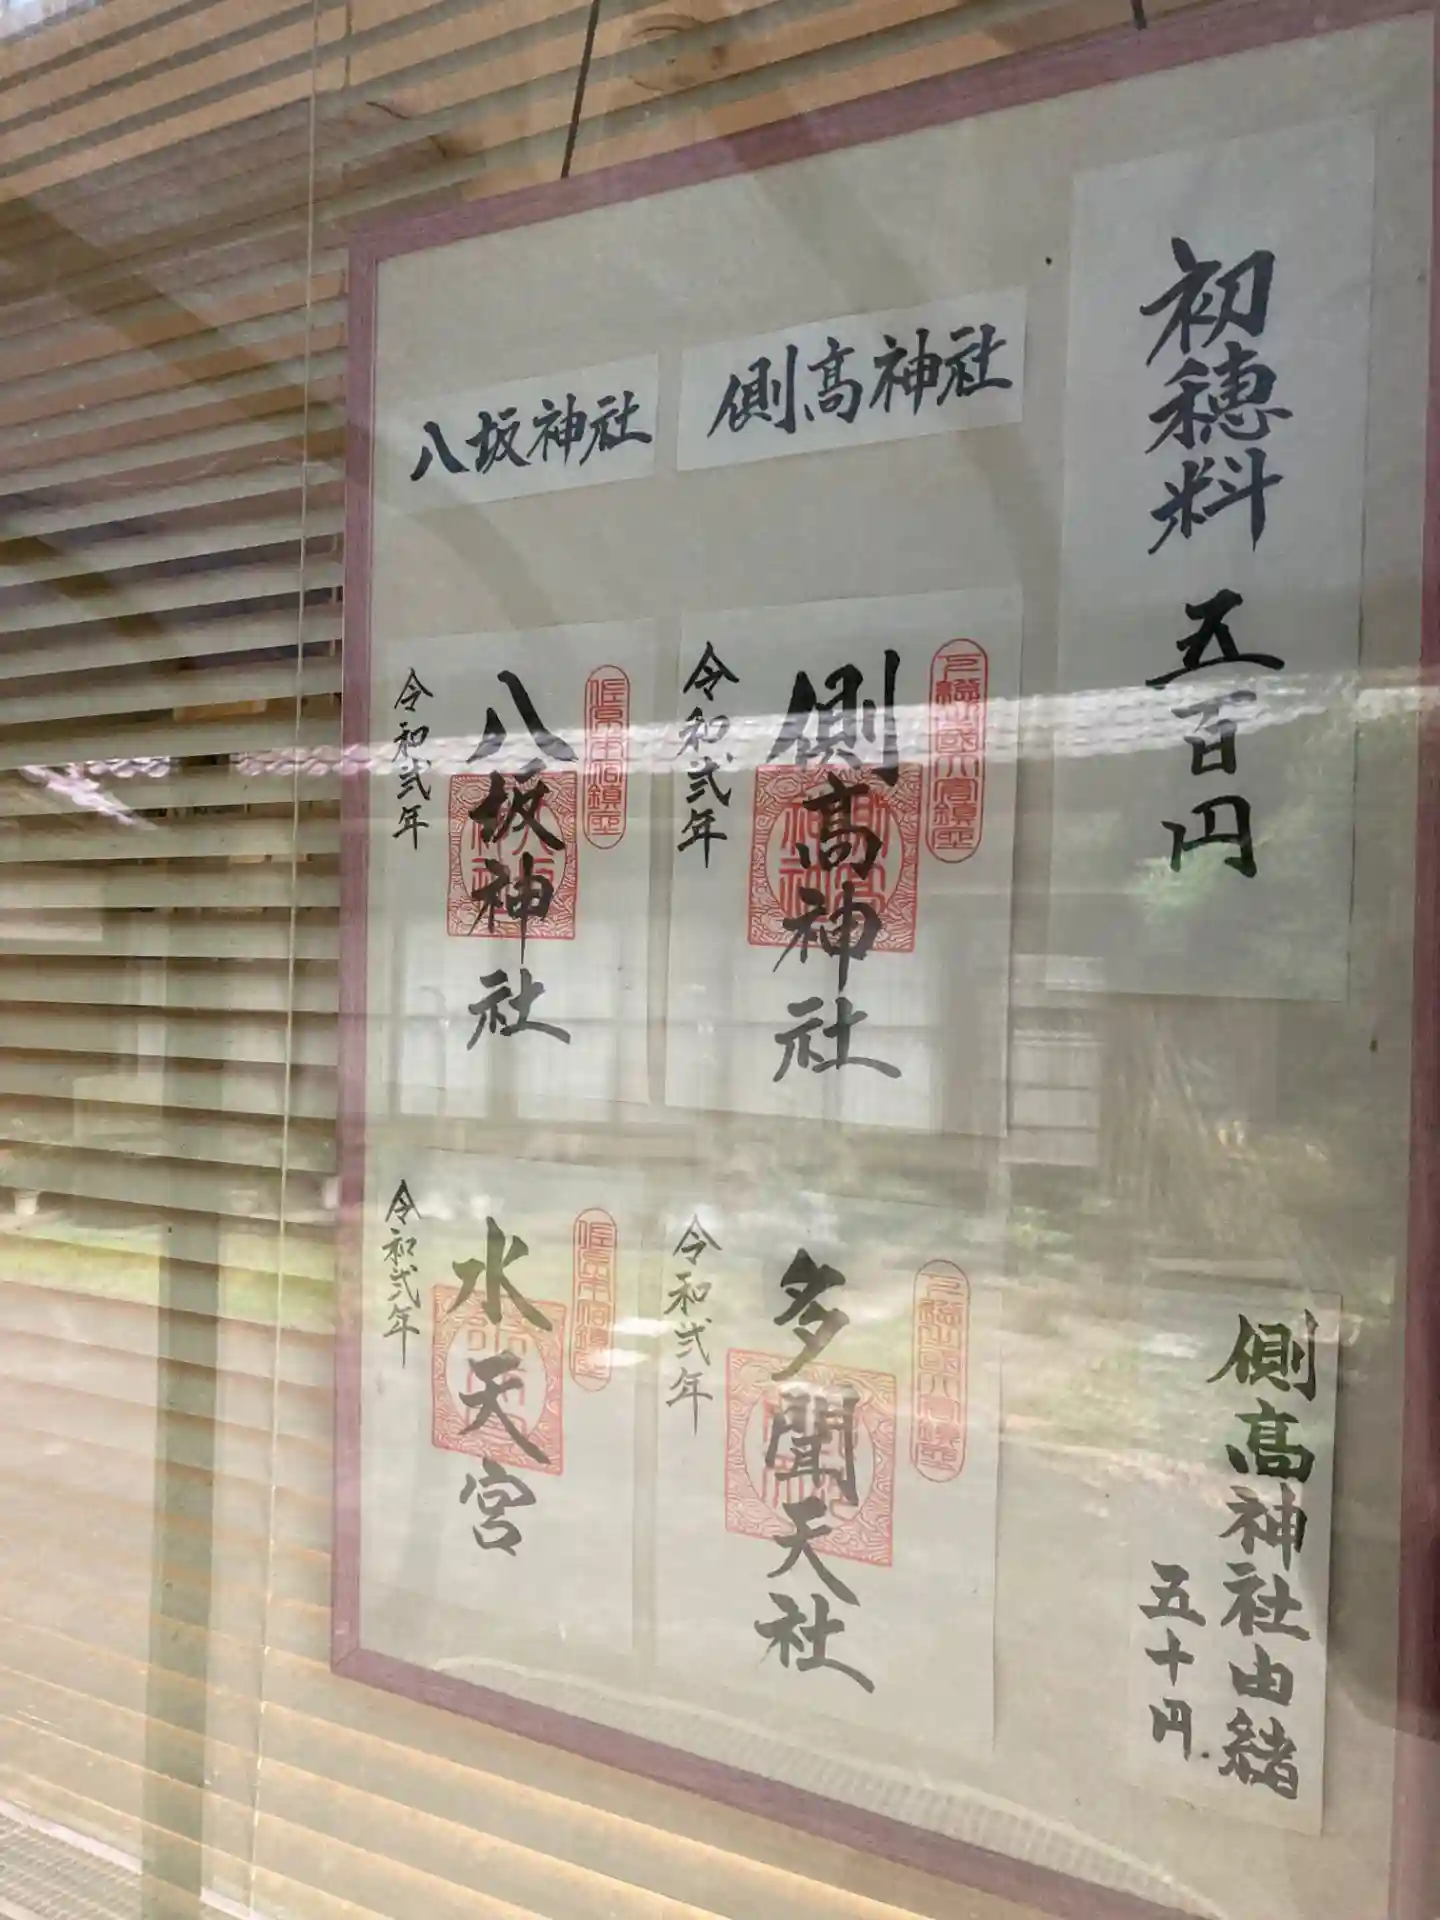 初穂料 五百円
側高神社由緒
五十円
側高神社
側高神社
令和弐年
多聞天社
令和弐年
八坂神社
佐原本宿鎮座
八坂神社
令和弐年
佐原本宿鎮座
水天宮
令和弐年